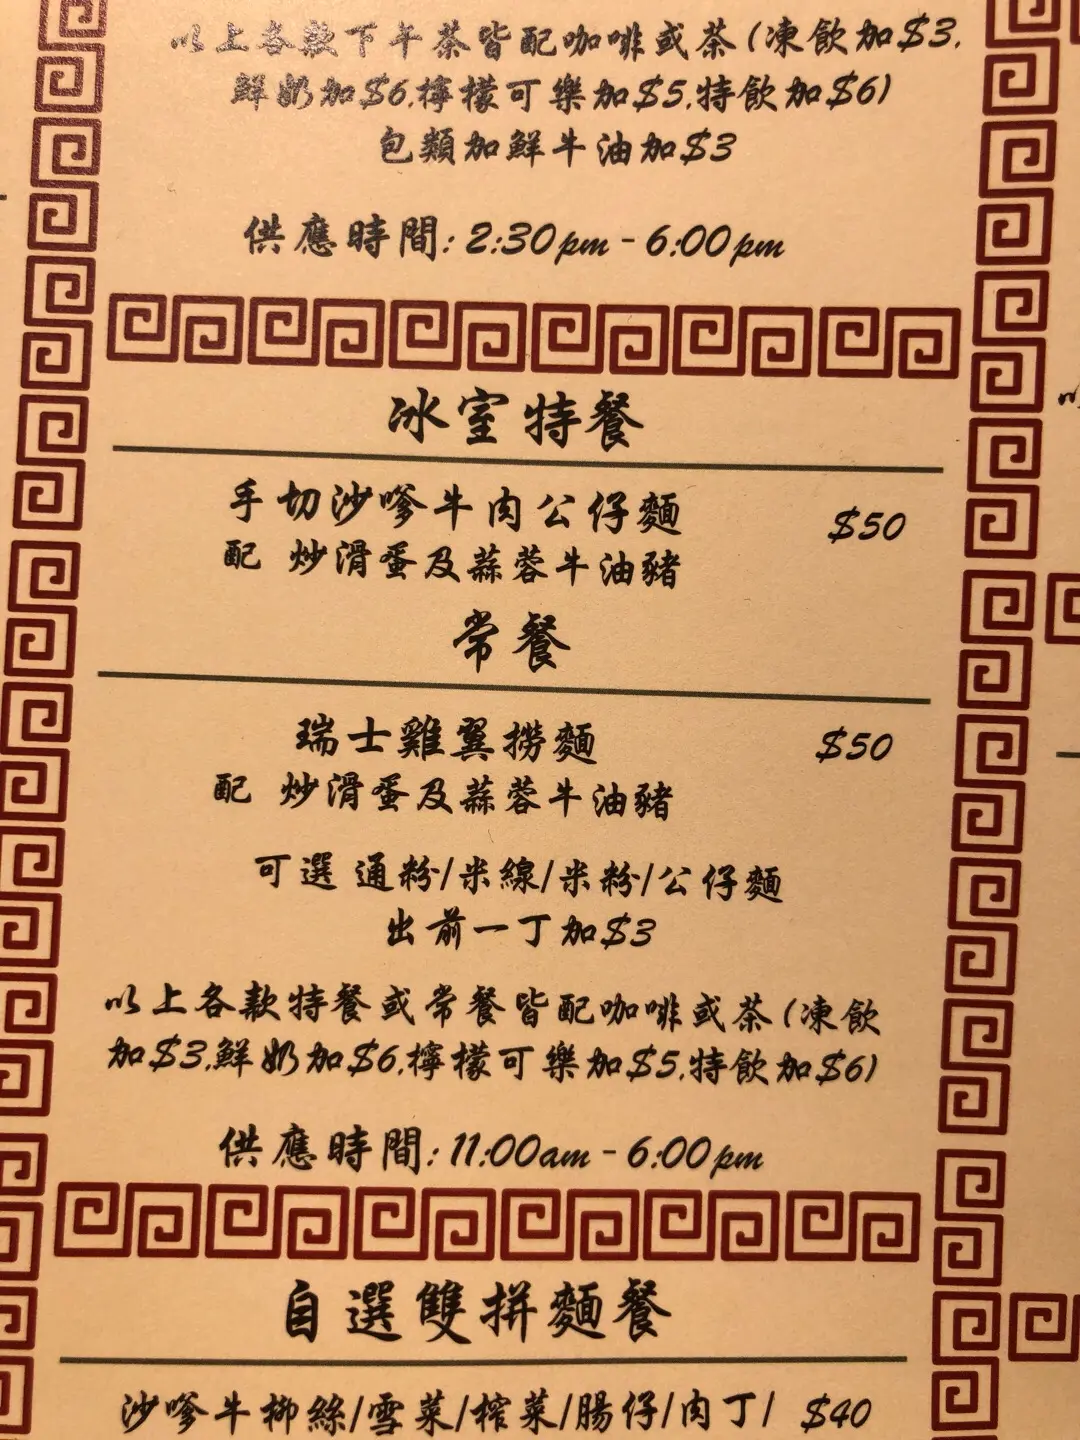 以上各款下午茶皆配咖啡或茶(凍飲加$3.
鮮奶加$6.檸檬可樂加$5.特飲加$6)
包類加鮮牛油加$3
供應時間: 2:30pm - 6:00pm
冰室特餐
手切沙嗲牛肉公仔麵 $50
配 炒滑蛋及蒜蓉牛油豬
常餐
瑞士雞翼撈麵 $50
配 炒滑蛋及蒜蓉牛油豬
可選 通粉/米線/米粉/公仔麵
出前一丁加$3
以上各款特餐或常餐皆配咖啡或茶(凍飲
加$3.鮮奶加$6.檸檬可樂加$5.特飲加$6)
供應時間: 11:00am - 6:00pm
自選雙拼麵餐
沙嗲牛柳絲/雪菜/榨菜/腸仔/肉丁/ $40